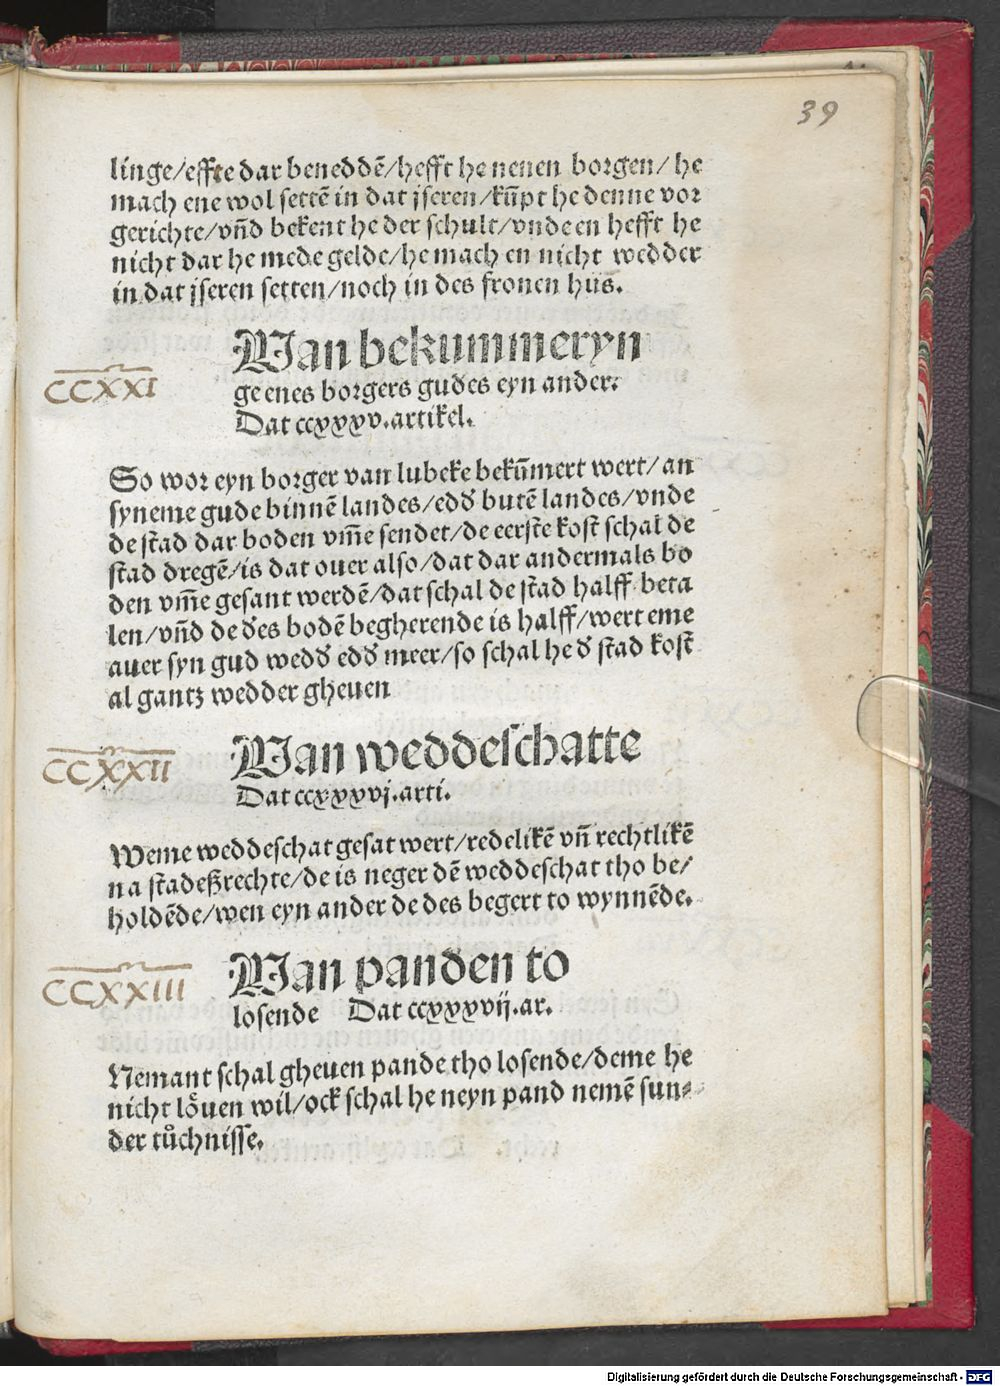 39
linge/effte dar beneddē/hefft he nenen borgen/ he
mach ene wol settē in dat jseren/kūpt he denne vor
gerichte/vn̄d bekent he der schult/vnde en hefft he
nicht dar he mede gelde/he mach en nicht wedder
in dat jseren setten/noch in des fronen hus.
Van bekummeryn
CCXXI
ge enes borgers gudes eyn ander.
Dat ccxxxv.artikel.
So wor eyn borger van lubeke bekūmert wert/an
syneme gude binnē landes/edď butē landes/vnde
de stad dar boden vm̄e sendet/de eerste kost schal de
stad dregē/is dat ouer also/dat dar andermals bo
den vm̄e gesant werdē/dat schal de stad halff beta
len/vn̄d de des bodē begherende is halff/wert eme
auer syn gud wedď edď meer/so schal he ď stad kost
al gantz wedder gheuen
Van weddeschatte
CCXXII
Dat ccxxxvj.arti.
Weme weddeschat gesat wert/redelikē vn̄ rechtlikē
na stadeßrechte/de is neger dē weddeschat tho be/
holdēde/wen eyn ander de des begert to wynnēde.
Van panden to
CCXXIII
losende Dat ccxxxvij.ar.
Nemant schal gheuen pande tho losende/deme he
nicht löuen wil/ock schal he neyn pand nemē sun⸗
der tůchnisse.
Digitalisierung gefördert durch die Deutsche Forschungsgemeinschaft - DFG